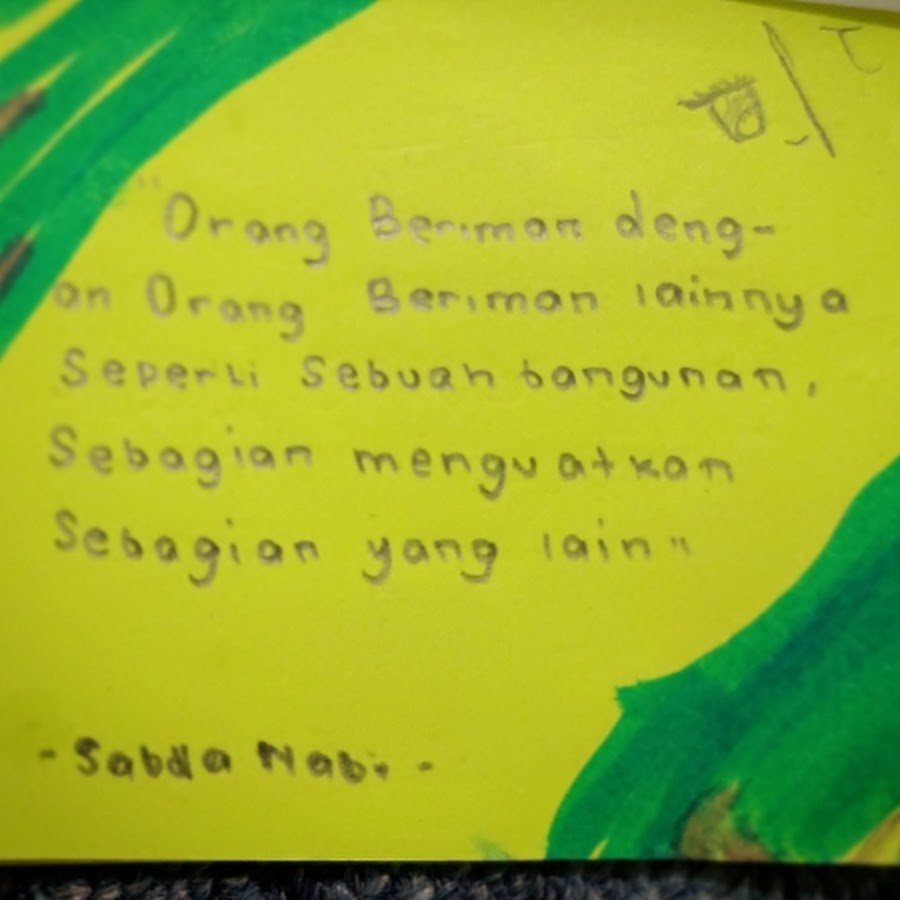 "Orang Beriman deng-
an Orang Beriman lainnya
Seperti Sebuah bangunan,
Sebagian menguatkan
Sebagian yang lain"
- Sabda Nabi -